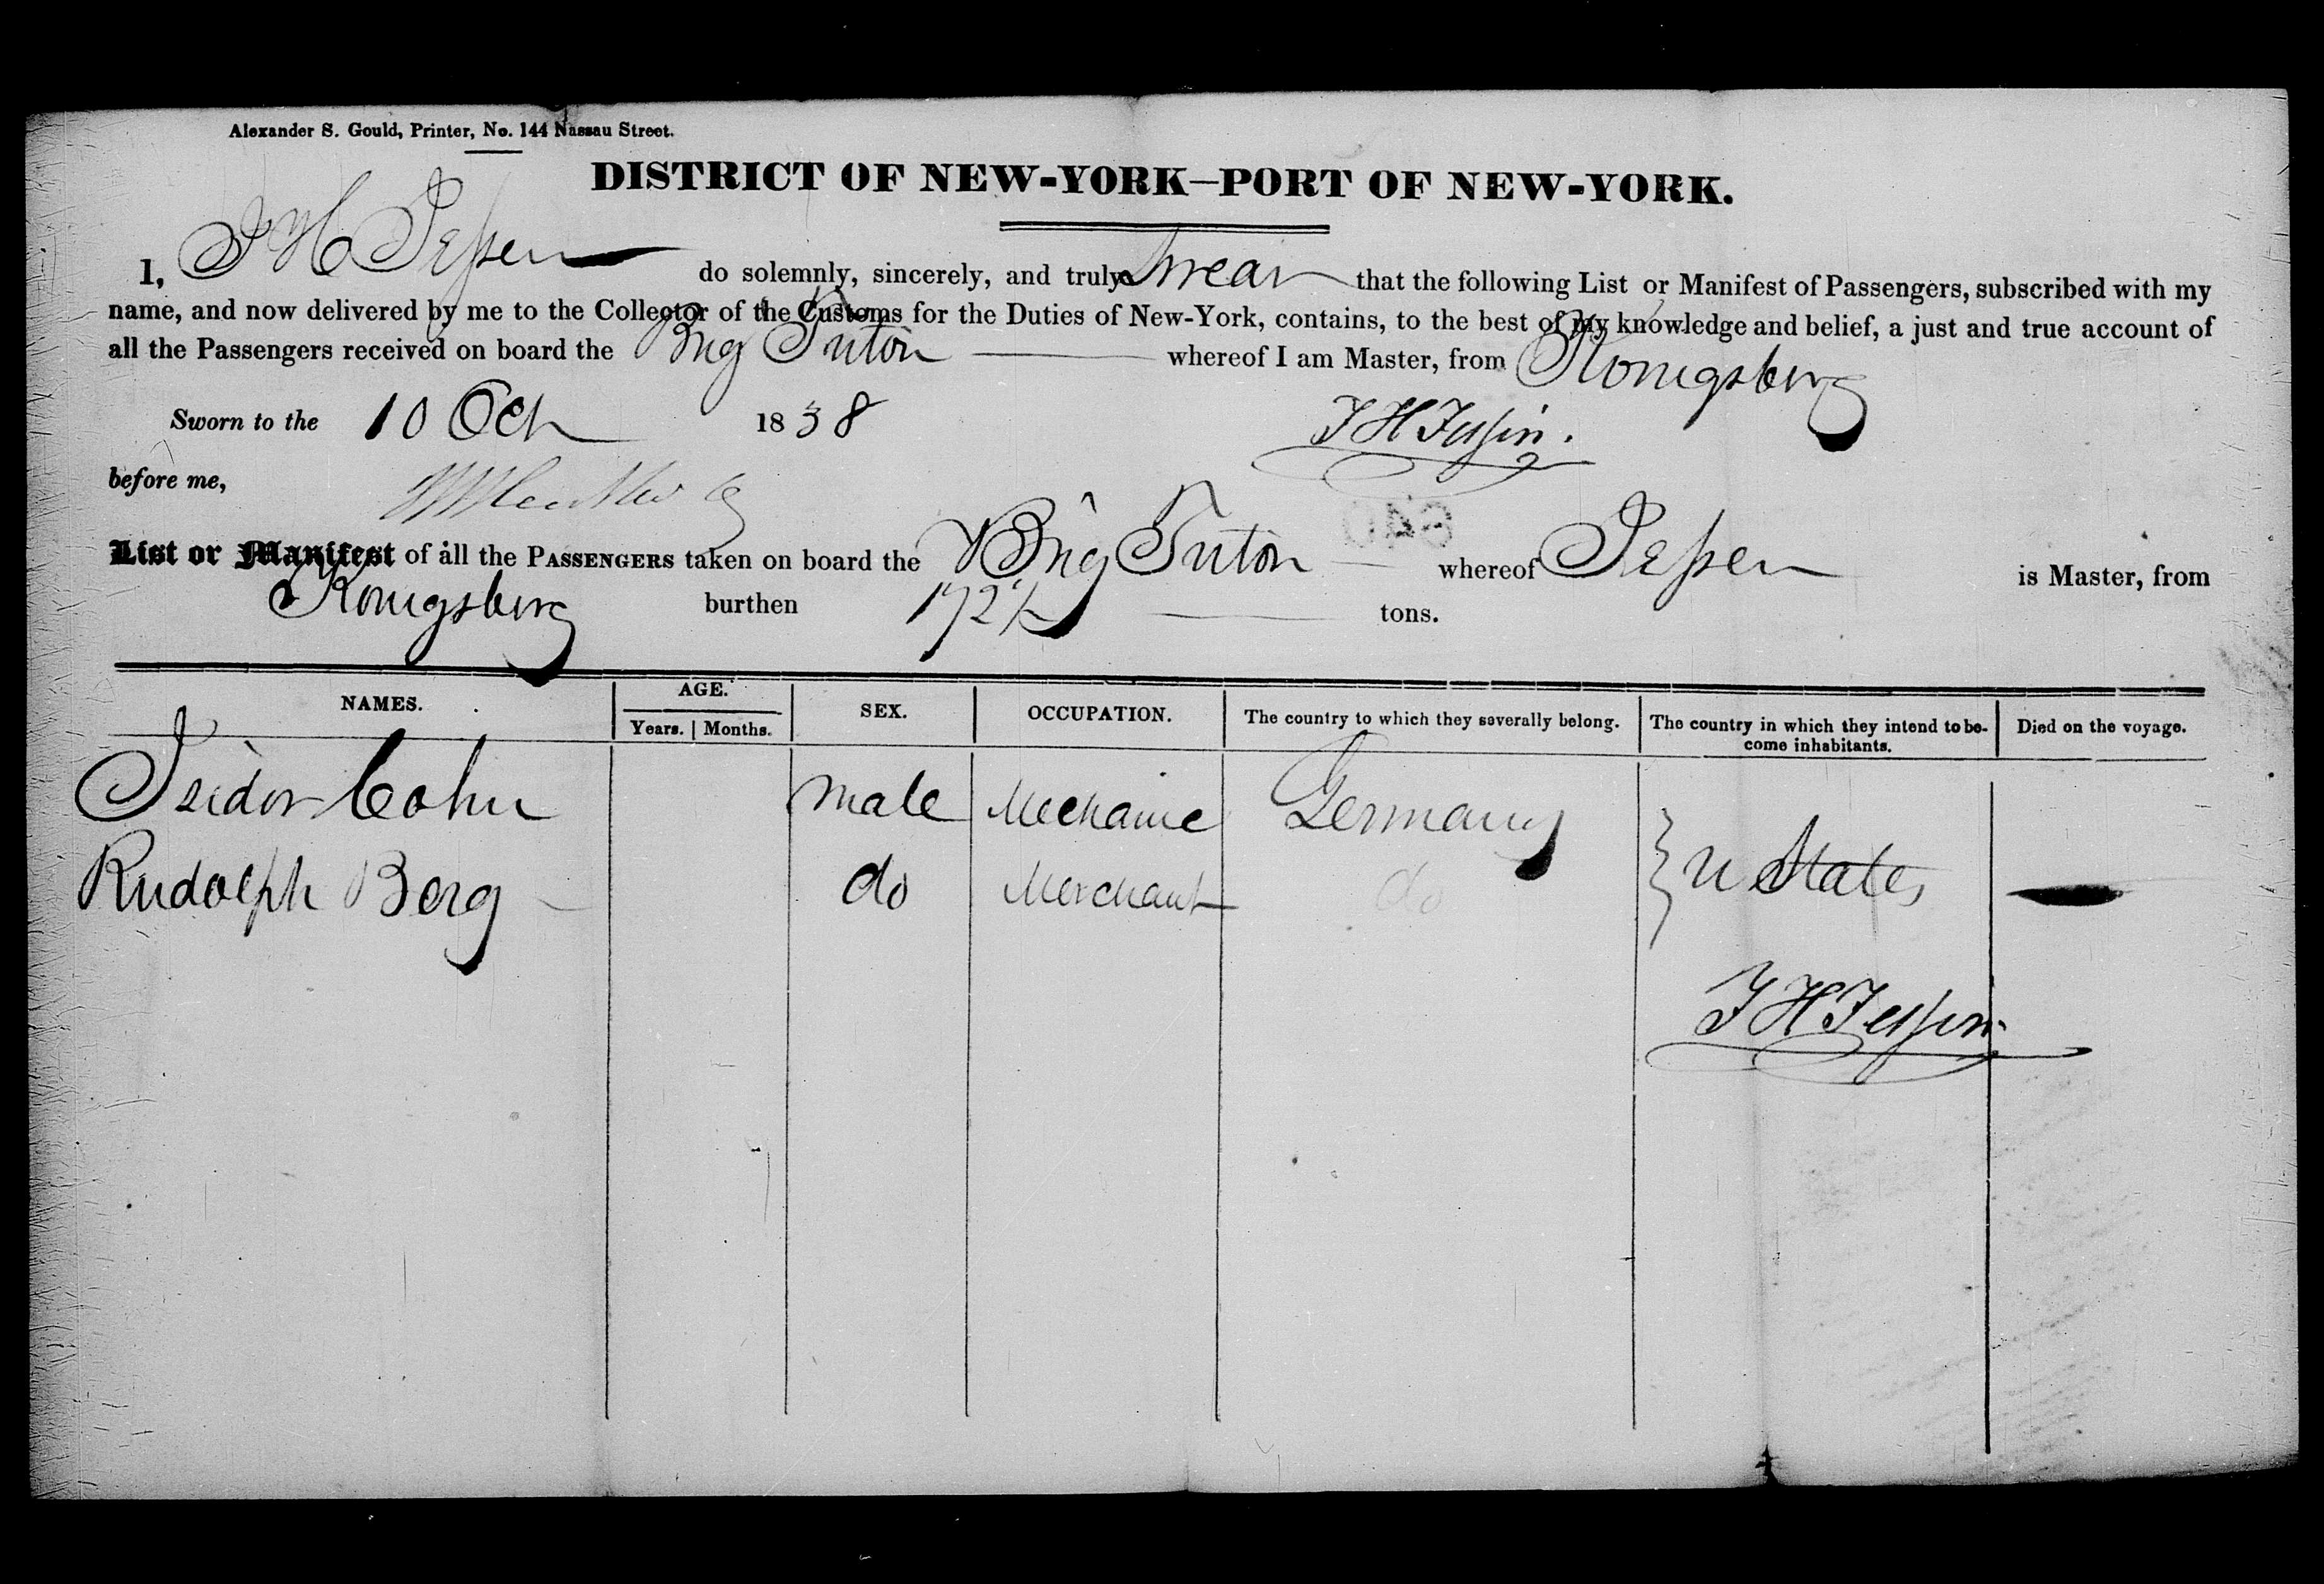 Alexander S. Gould, Printer, No. 144 Nassau Street.
DISTRICT OF NEW-YORK—PORT OF NEW-YORK.
I, J H Jessen do solemnly, sincerely, and truly swear that the following List or Manifest of Passengers, subscribed with my
name, and now delivered by me to the Collector of the Customs for the Duties of New-York, contains, to the best of my knowledge and belief, a just and true account of
all the Passengers received on board the Brig Triton whereof I am Master, from Konigsberg
Sworn to the 10 Oct 1838 J H Jessen.
before me,
List or Manifest of all the PASSENGERS taken on board the Brig Triton whereof Jessen is Master, from
Konigsberg burthen 172 tons.
NAMES. AGE. SEX. OCCUPATION. The country to which they severally belong. The country in which they intend to be-
come inhabitants. Died on the voyage.
Years. Months.
Isidor Cohn male Mechanic Germany
Rudolph Berg do Merchant do U States
J H Jessen